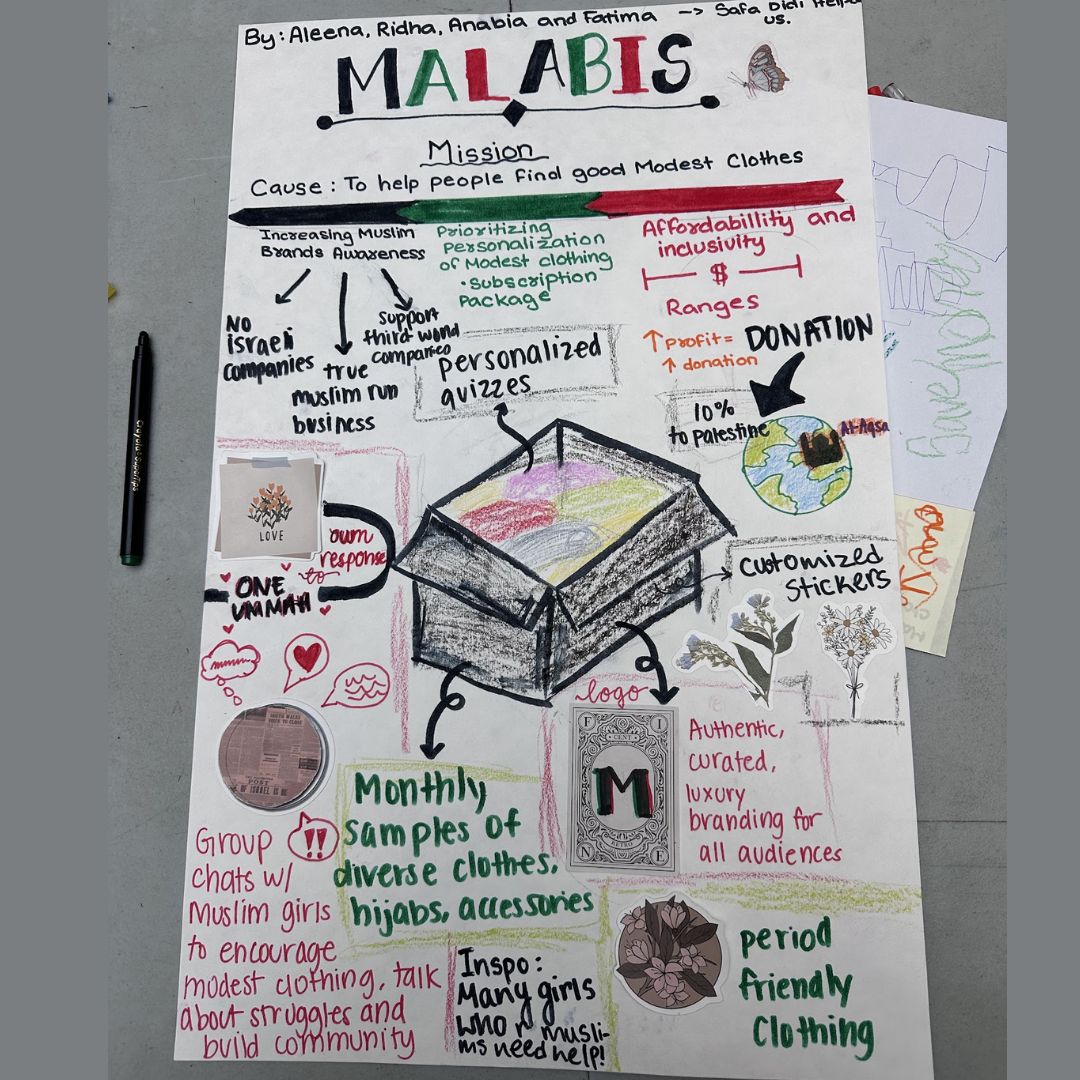 By: Aleena, Ridha, Anabia and Fatima -> Safa Didi Helped
us.
MALABIS
Mission
Cause: To help people find good Modest Clothes
Increasing Muslim
Brands Awareness
NO
israeli
companies
true
muslim run
business
support
third world
companies
Prioritizing
Personalization
of Modest clothing
• Subscription
Package
personalized
quizzes
Affordabillity and
inclusivity
$
Ranges
↑ profit =
↑ donation
DONATION
10%
to palestine
Al-Aqsa
LOVE
our
response
to
ONE
UMMAH
customized
stickers
logo
F I
CENT
M
RETRO
N E
Authentic,
curated,
luxury
branding for
all audiences
POST
Group !!
chats w/
Muslim girls
to encourage
modest clothing, talk
about struggles and
build community
Monthly
samples of
diverse clothes,
hijabs, accessories
Inspo:
Many girls
who r musli-
ms need help!
period
friendly
Clothing
Crayola SuperTips